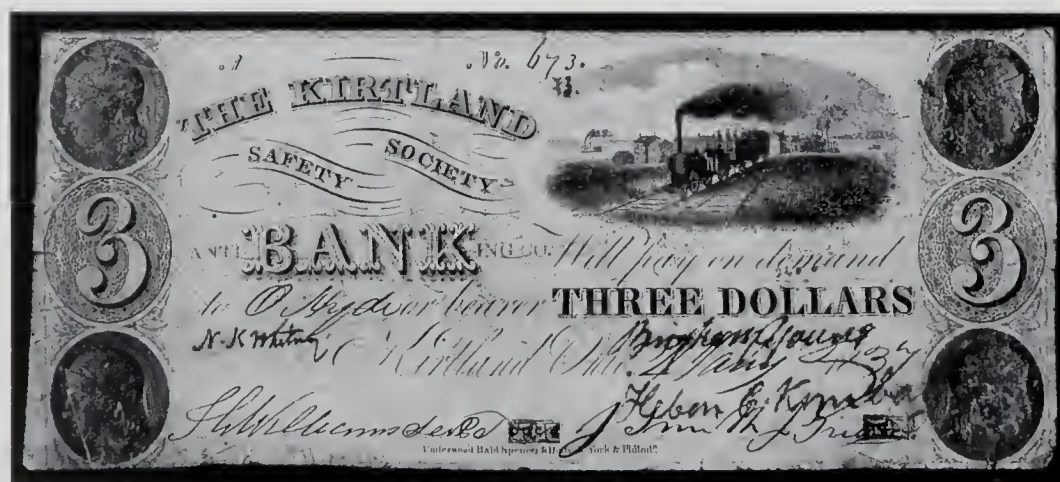 A No. 673.
THE KIRTLAND
SAFETY SOCIETY
ANTI BANK ING CO. Will pay on demand
3 3
to O Hyde or bearer THREE DOLLARS
N. K Whitney Brigham Young
Kirtland Ohio 1837
Heber C. Kimball
F G Williams Sect
Underwood Bald Spencer & York & Philadª